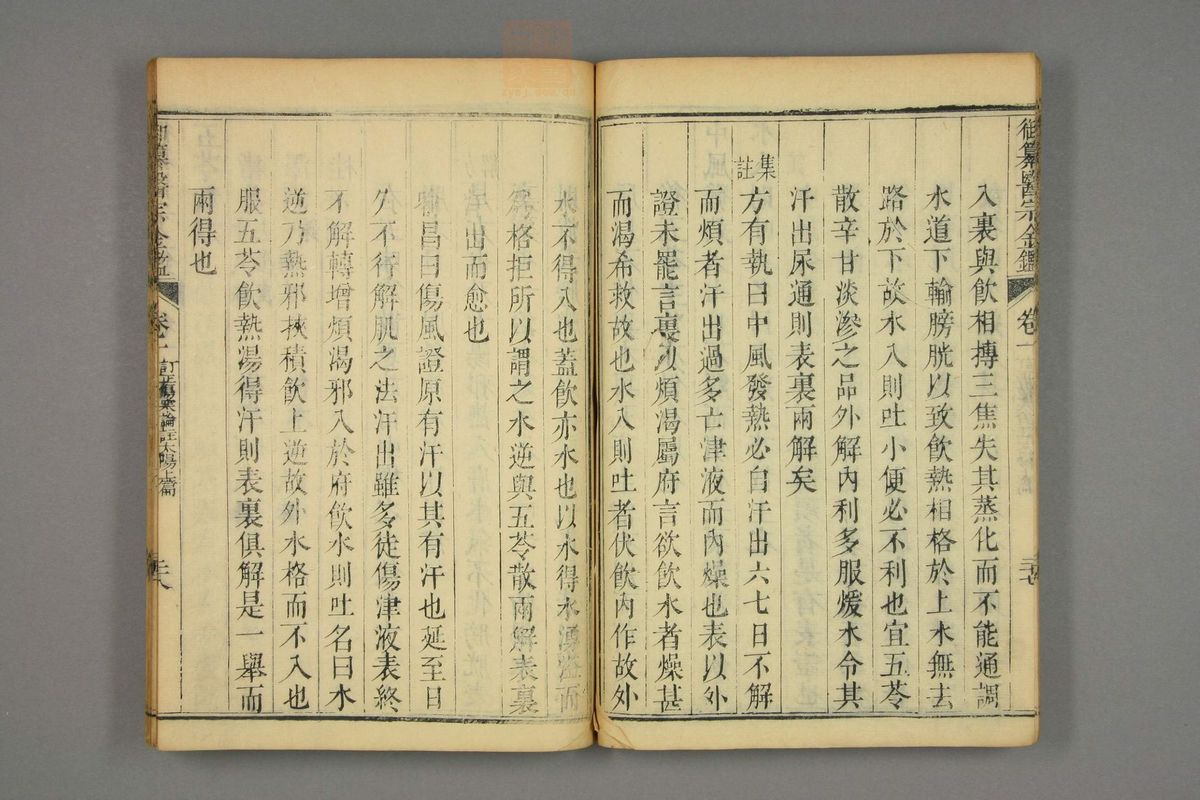 御纂醫宗金鑑 卷一
入裏與飲相摶三焦失其蒸化而不能通調
水道下輸膀胱以致飲熱相格於上水無去
路於下故水入則吐小便必不利也宜五苓
散辛甘淡滲之品外解內利多服煖水令其
汗出尿通則表裏兩解矣
集註
方有執曰中風發熱必自汗出六七日不解
而煩者汗出過多亡津液而內燥也表以外
證未罷言裏以煩渴屬府言欲飲水者燥甚
而渴希救故也水入則吐者伏飲內作故外
水不得入也蓋飲亦水也以水得水湧溢而
為格拒所以謂之水逆與五苓散兩解表裏
汗出而愈也
喻昌曰傷風證原有汗以其有汗也延至日
久不行解肌之法汗出雖多徒傷津液表終
不解轉增煩渴邪入於府飲水則吐名曰水
逆乃熱邪挾積飲上逆故外水格而不入也
服五苓飲熱湯得汗則表裏俱解是一舉而
兩得也
御纂醫宗金鑑 卷一 訂正傷寒論註太陽上篇 二十八